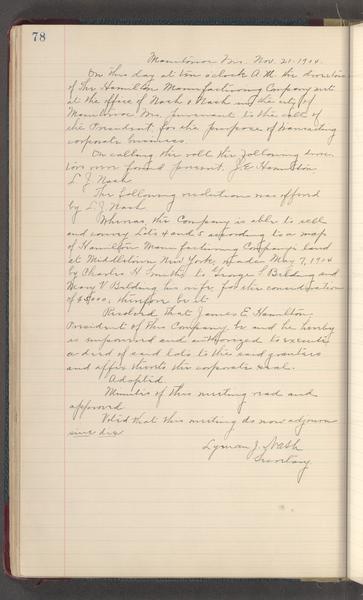 78
Manitowoc Wis. Nov. 21. 1904.
On this day at ten o'clock A.M. the directors
of The Hamilton Manufacturing Company met
at the office of Nash & Nash in the city of
Manitowoc Wis. pursuant to the call of
the President for the purpose of transacting
corporate business.
On calling the roll the following direc-
tors were found present. J. E. Hamilton
L. J. Nash
The following resolution was offered
by L. J. Nash
Whereas, the Company is able to sell
and convey Lots 4 and 5 according to a map
of Hamilton Manufacturing Company's land
at Middletown New York, made May 7, 1904
by Charles H. Smith to George S. Belding and
Mary V. Belding his wife, for the consideration
of $5,000, therefore be it
Resolved that James E. Hamilton,
President of this Company, be and he hereby
is empowered and authorized to execute
a deed of said lots to the said grantees
and affix thereto the corporate seal.
Adopted.
Minutes of this meeting read and
approved
Voted that this meeting do now adjourn
sine die
Lyman J. Nash
Secretary.